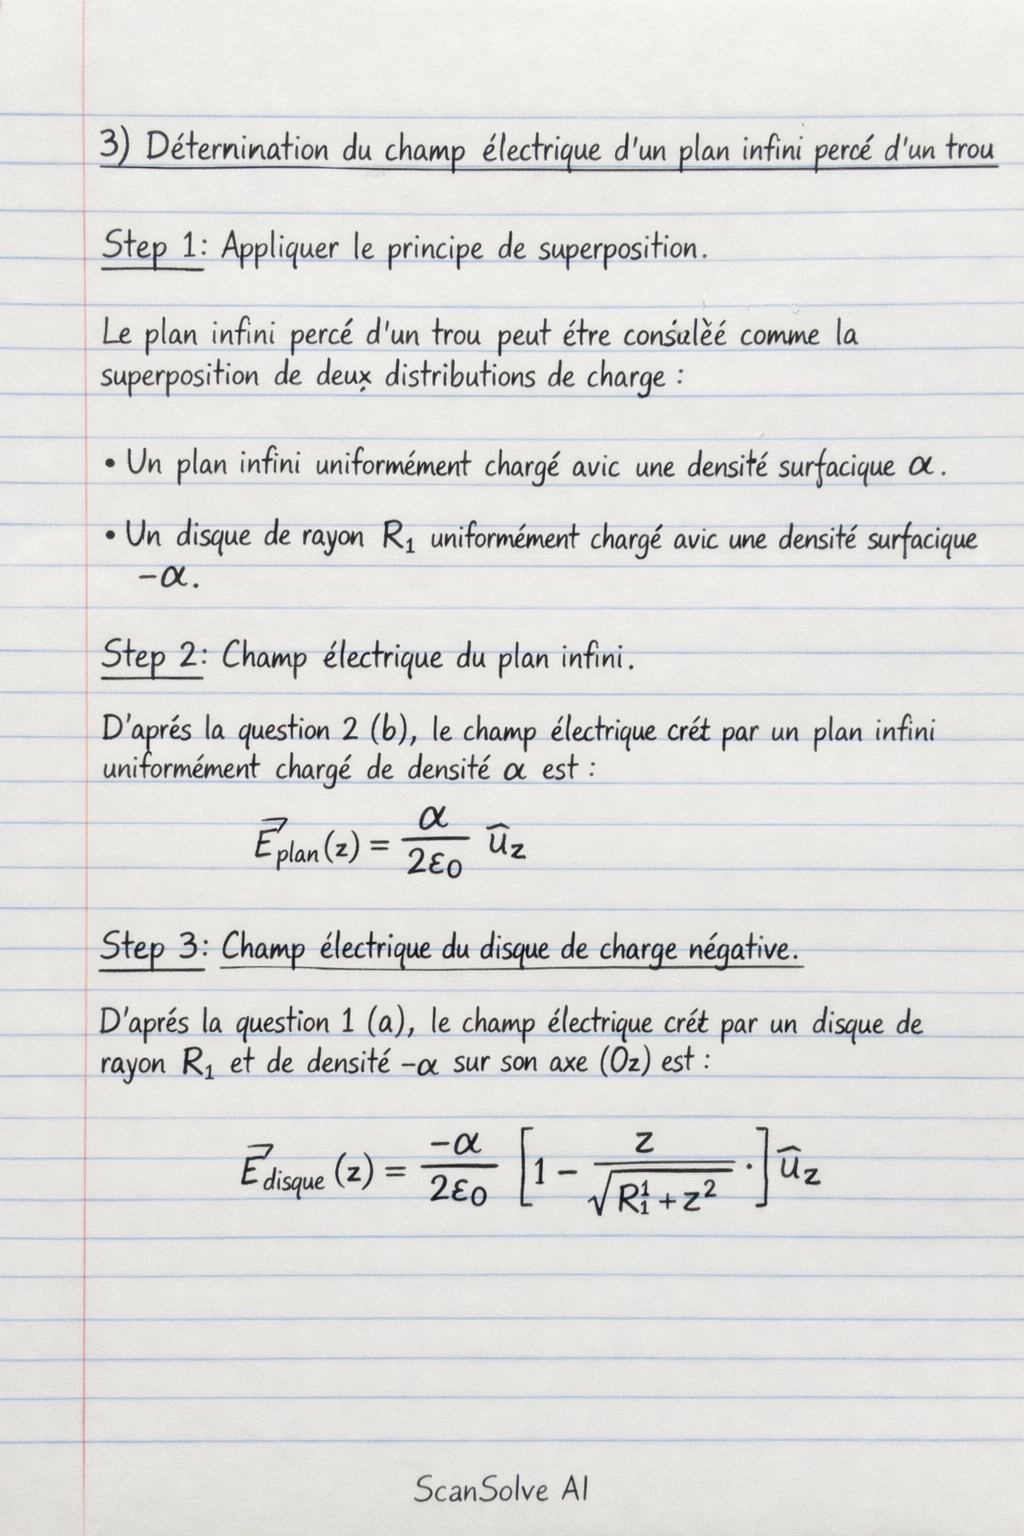 3) Déternination du champ électrique d'un plan infini percé d'un trou
Step 1: Appliquer le principe de superposition.
Le plan infini percé d'un trou peut étre comme la
superposition de deux distributions de charge :
• Un plan infini uniformément chargé avic une densité surfacique α.
• Un disque de rayon R₁ uniformément chargé avic une densité surfacique
-α.
Step 2: Champ électrique du plan infini.
D'aprés la question 2 (b), le champ électrique crét par un plan infini
uniformément chargé de densité α est :
E⃗plan(z) = α / 2ε0 ûz
Step 3: Champ électrique du disque de charge négative.
D'aprés la question 1 (a), le champ électrique crét par un disque de
rayon R₁ et de densité -α sur son axe (Oz) est :
E⃗disque (z) = -α / 2ε0 [1 - z / √(R₁¹ + z²) ·] ûz
ScanSolve AI